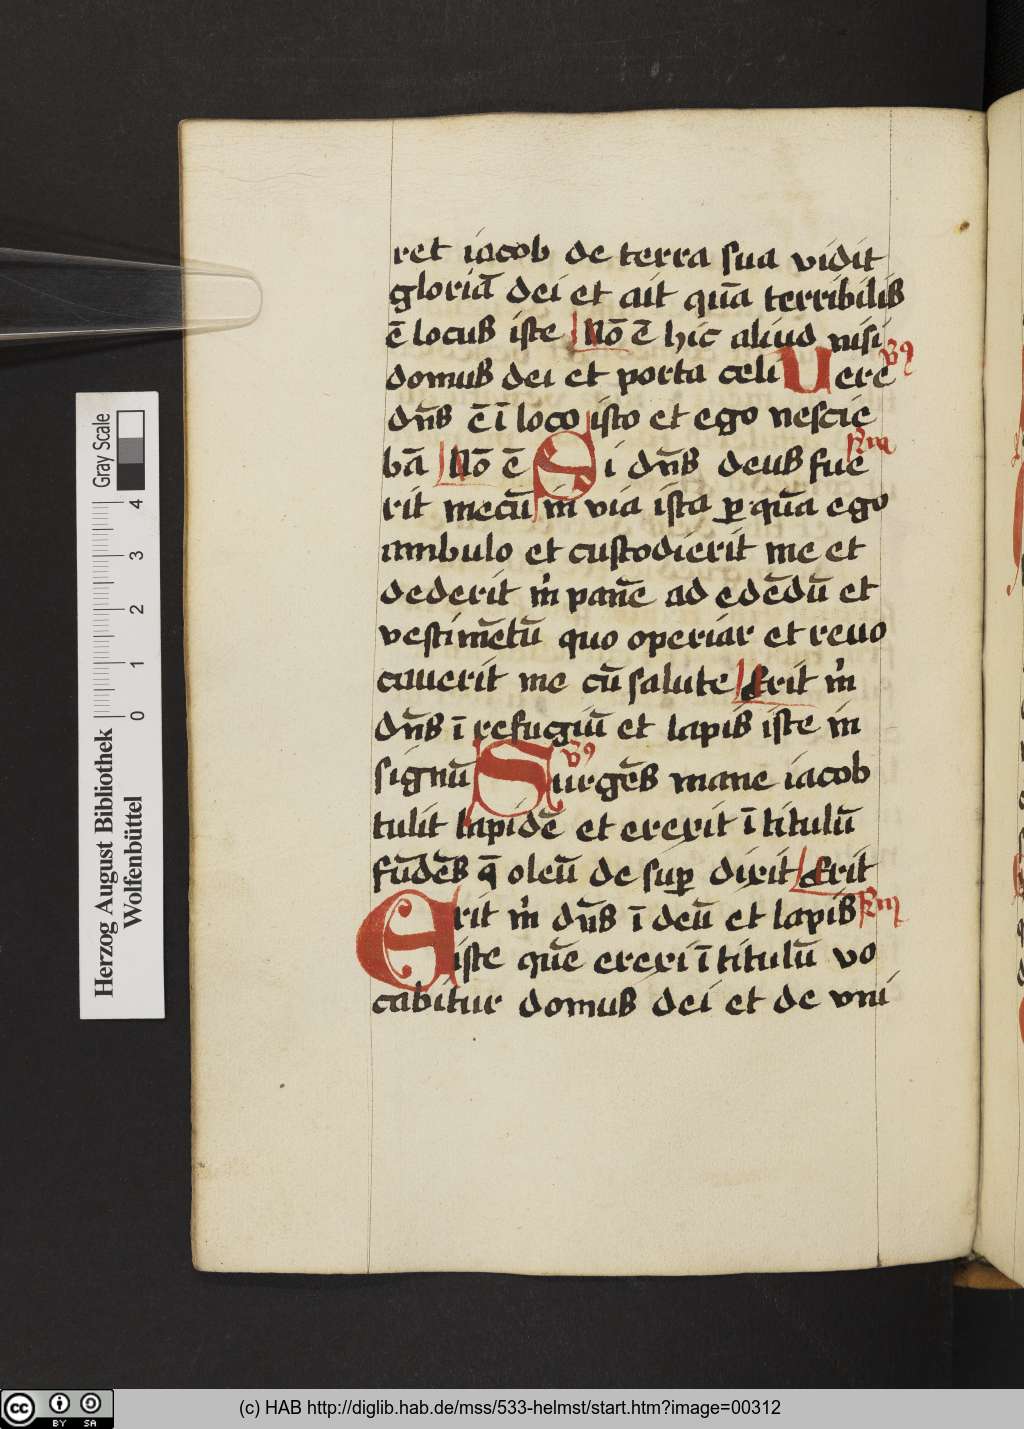 ret iacob de terra sua vidit
gloriā dei et ait quā terribilis
ē locus iste Nō ē hic aliud nisi
domus dei et porta celi Uere vꝰ
dn̄s ē ī loco isto et ego nescie
bā Nō ē Si dn̄s deus fue Rm
rit mecū in via ista ꝑ quā ego
ambulo et custodierit me et
dederit m̍ panē ad edēdū et
vestimētū quo operiar et reuo
cauerit me cū salute Erit m̍
dn̄s ī refugiū et lapis iste in
signū Surgēs mane iacob vꝰ
tulit lapidē et erexit ī titulū
fūdēs q̄ oleū de suꝑ dixit Erit
Erit m̍ dn̄s ī deū et lapis Rm
iste quē erexi ī titulū vo
cabitur domus dei et de vni
Gray Scale
0 1 2 3 4
Herzog August Bibliothek
Wolfenbüttel
cc BY SA
(c) HAB http://diglib.hab.de/mss/533-helmst/start.htm?image=00312